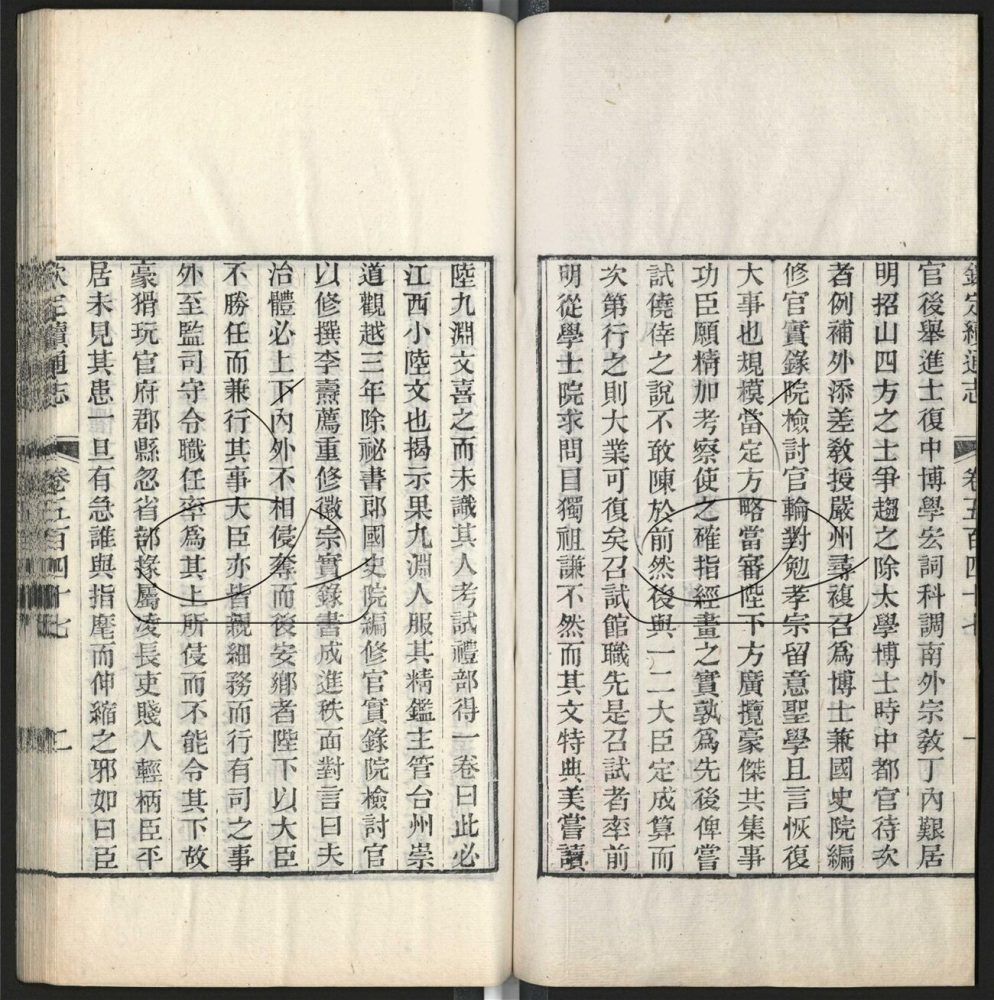 欽定續通志 卷五百四十七
官後舉進士復中博學宏詞科調南外宗教丁內艱居
明招山四方之士爭趨之除太學博士時中都官待次
者例補外添差教授嚴州尋複召爲博士兼國史院編
修官實錄院檢討官輪對勉孝宗留意聖學且言恢復
大事也規模當定方略當審陛下方廣攬豪傑共集事
功臣願精加考察使之確指經畫之實孰爲先後俾嘗
試僥倖之說不敢陳於前然後與一二大臣定成算而
次第行之則大業可復矣召試館職先是召試者率前
明從學士院求問目獨祖謙不然而其文特典美嘗讀
陸九淵文喜之而未識其人考試禮部得一卷曰此必
江西小陸文也揭示果九淵人服其精鑑主管台州崇
道觀越三年除祕書郎國史院編修官實錄院檢討官
以修撰李燾薦重修徽宗實錄書成進秩面對言曰夫
治體必上下內外不相侵奪而後安鄉者陛下以大臣
不勝任而兼行其事大臣亦皆親細務而行有司之事
外至監司守令職任率爲其上所侵而不能令其下故
豪猾玩官府郡縣忽省部掾屬凌長吏賤人輕柄臣平
居未見其患一旦有急誰與指麾而伸縮之邪如曰臣
欽定續通志 卷五百四十七